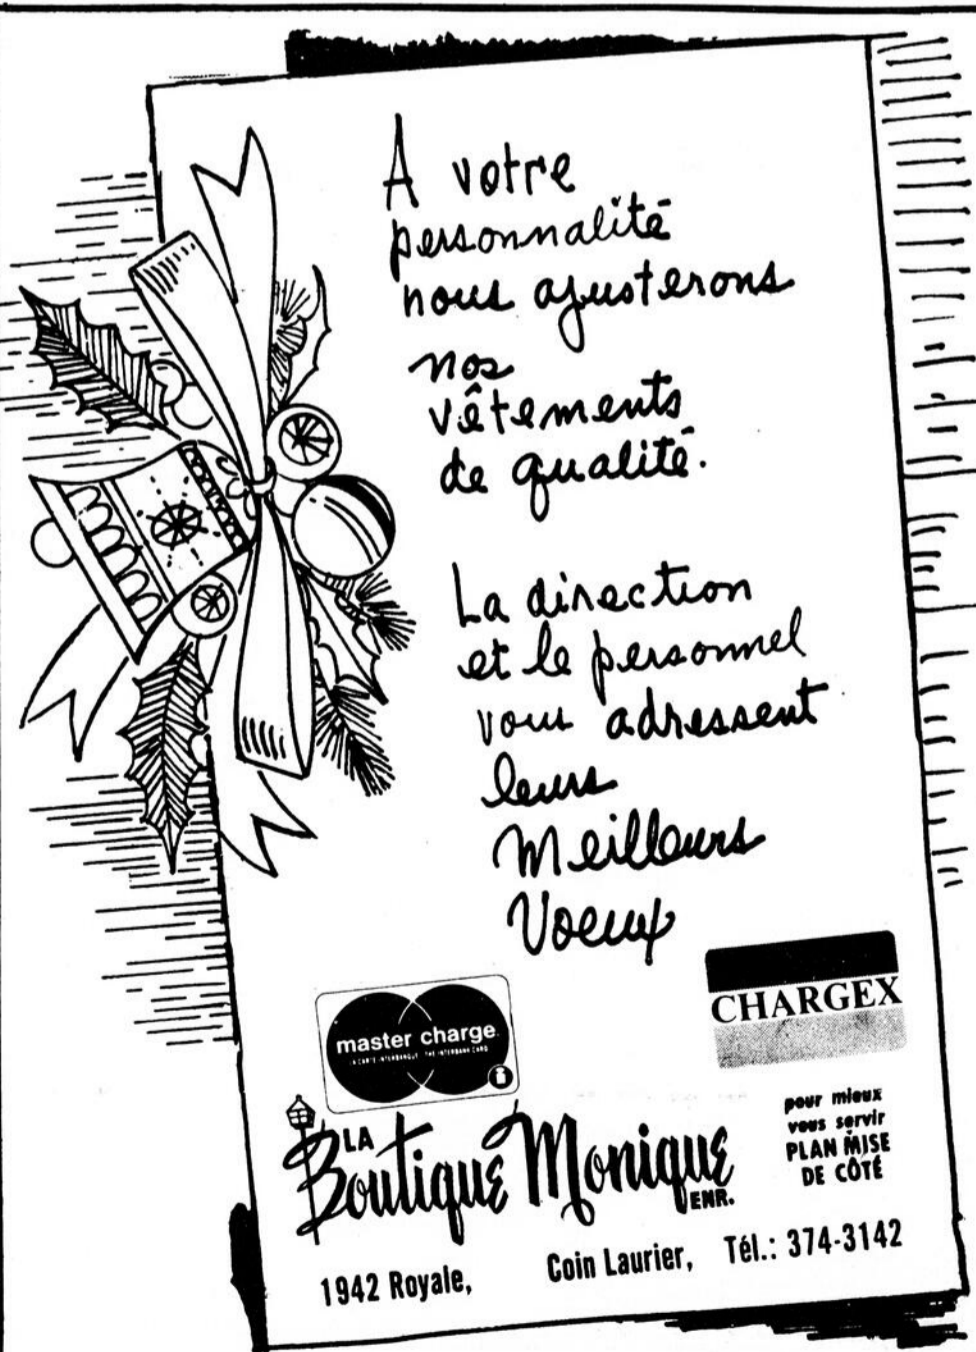 A votre
personnalité
nous ajusterons
nos
vêtements
de qualité.
La direction
et le personnel
vous adressent
leurs
Meilleurs
Voeux
master charge
LA CARTE INTERBANCAIRE THE INTERBANK CARD
i
CHARGEX
pour mieux
vous servir
PLAN MISE
DE CÔTÉ
LA
Boutique Monique
ENR.
1942 Royale, Coin Laurier, Tél.: 374-3142